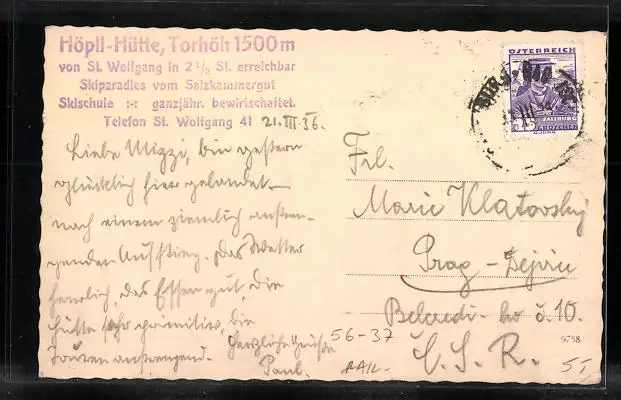 Höpll-Hütte, Torhöh 1500 m
von St. Wolfgang in 2 1/2 St. erreichbar
Skiparadies vom Salzkammergut
Skischule :-: ganzjähr. bewirtschaftet.
Telefon St. Wolfgang 41
21.III.36.
Liebe Mizzi, bin gestern
glücklich hier gelandet
nach einem ziemlich anstren-
genden Aufstieg. Das Wetter
herrlich, das Essen gut, die
Hütte sehr primitiv, die
Touren anstrengend. Herzliche Grüße
Paul.
ÖSTERREICH
SALZBURG
GROSCHEN
Frl.
Marie Klatovsky
Prag - Dejvice
č. 10.
Č. S. R.
56-37
9758